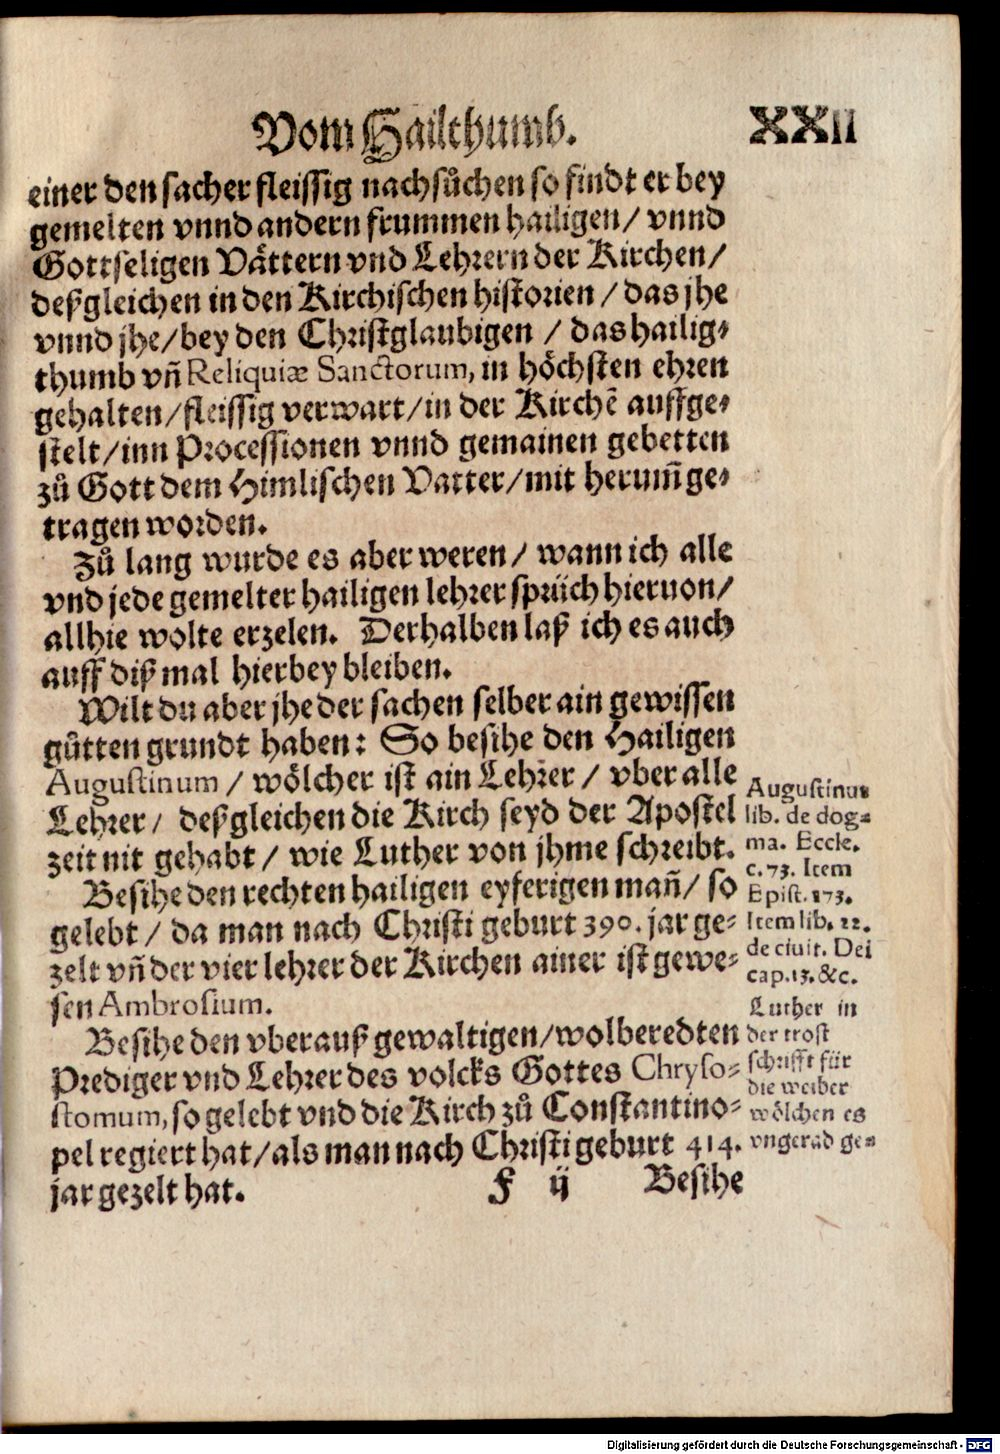 Vom Hailthumb. XXII
einer den sacher fleissig nachsůchen so findt er bey
gemelten vnnd andern frummen hailigen/ vnnd
Gottseligen Vättern vnd Lehrern der Kirchen/
deßgleichen in den Kirchischen historien / das jhe
vnnd jhe/bey den Christglaubigen / das hailig⸗
thumb vñ Reliquiæ Sanctorum, in höchsten ehren
gehalten/fleissig verwart/in der Kirchẽ auffge⸗
stelt/inn Processionen vnnd gemainen gebetten
zů Gott dem Himlischen Vatter/mit herum̃ ge⸗
tragen worden.
Zů lang wurde es aber weren/ wann ich alle
vnd jede gemelter hailigen lehrer sprüch hieruon/
allhie wolte erzelen. Derhalben laß ich es auch
auff diß mal hierbey bleiben.
Wilt du aber jhe der sachen selber ain gewissen
gůtten grundt haben: So besihe den Hailigen
Augustinum / wölcher ist ain Lehrer / vber alle
Lehrer/ deßgleichen die Kirch seyd der Apostel
zeit nit gehabt / wie Luther von jhme schreibt.
Besihe den rechten hailigen eyferigen mañ/ so
gelebt / da man nach Christi geburt 390. jar ge⸗
zelt vñ der vier lehrer der Kirchen ainer ist gewe⸗
sen Ambrosium.
Besihe den vberauß gewaltigen/wolberedten
Prediger vnd Lehrer des volcks Gottes Chryso⸗
stomum, so gelebt vnd die Kirch zů Constantino⸗
pel regiert hat/als man nach Christi geburt 414.
jar gezelt hat.
F ij Besihe
Augustinus
lib. de dog⸗
ma. Eccle.
c. 73. Item
Epist. 173.
Item lib. 22.
de ciuit. Dei
cap. 13. &c.
Luther in
der trost
schrifft für
die weiber
wölchen es
vngerad ge⸗
Digitalisierung gefördert durch die Deutsche Forschungsgemeinschaft - DFG